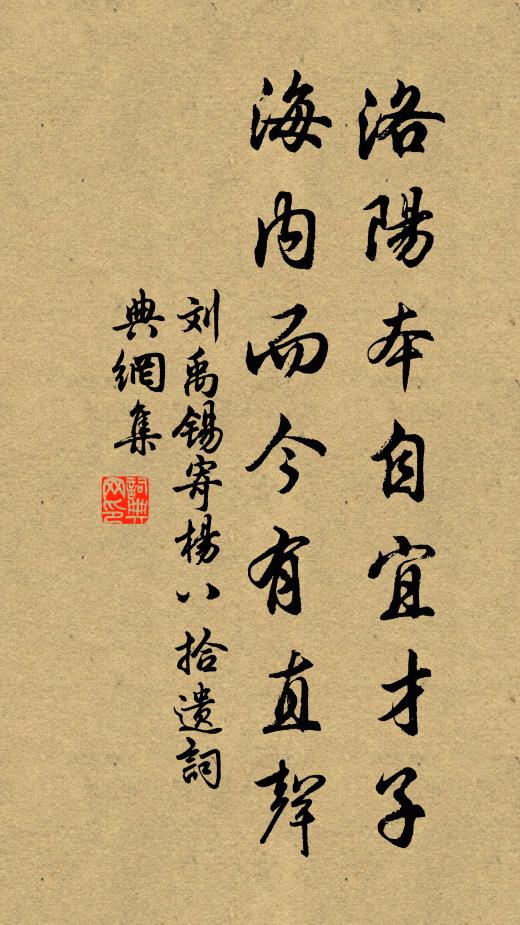 洛陽本自宜才子
海内而今有直聲
刘禹锡寄楊八拾遗詞
典網集
詞典網印